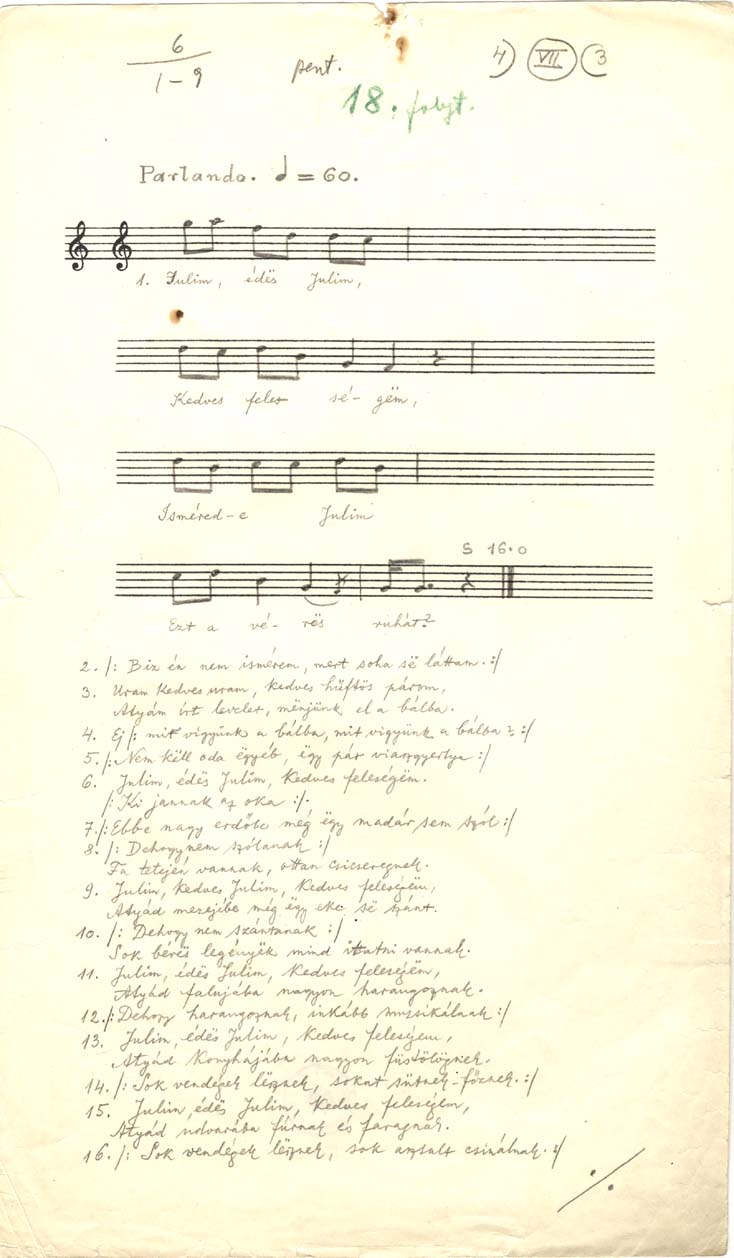 6
1-9
pent.
4) VII (3
18. folyt.
Parlando. ♩ = 60.
1. Julim, édës Julim,
Kedves feles sé- gëm,
Isméred-e Julim
S 16.0
Ezt a vé- rës ruhát?
2. /: Biz én nem ismérem, mert soha së láttam. :/
3. Uram kedves uram, kedves hüftös párom,
Atyám írt levelet, mënjünk el a bálba.
4. Ej /: mit vigyünk a bálba, mit vigyünk a bálba? :/
5. /: Nem këll oda ëgyéb, ëgy pár viaszgyertya :/
6. Julim, édës Julim, kedves feleségëm.
/: Ki jannak az oka :/.
7. /: Ebbe nagy erdőbe még ëgy madár sem szól :/
8. /: Dehogynem szólanak :/
Fa tetején vannak, ottan csicseregnek.
9. Julim, kedves Julim, kedves feleségëm,
Atyád mezejébe még ëgy eke së szánt.
10. /: Dehogy nem szántanak :/
Sok bérës legényëk mind ittatni vannak.
11. Julim, édës Julim, kedves feleségëm,
Atyád falujába nagyon harangoznak.
12. /: Dehogy harangoznak, inkább muzsikálnak :/
13. Julim, édës Julim, kedves feleségem,
Atyád konyhájába nagyon füstölögnek.
14. /: Sok vendégek lësznek, sokat sütnek-főznek. :/
15. Julim, édës Julim, kedves feleségem,
Atyád udvarába fúrnak és faragnak.
16. /: Sok vendégek lësznek, sok asztalt csinálnak. :/
·/.